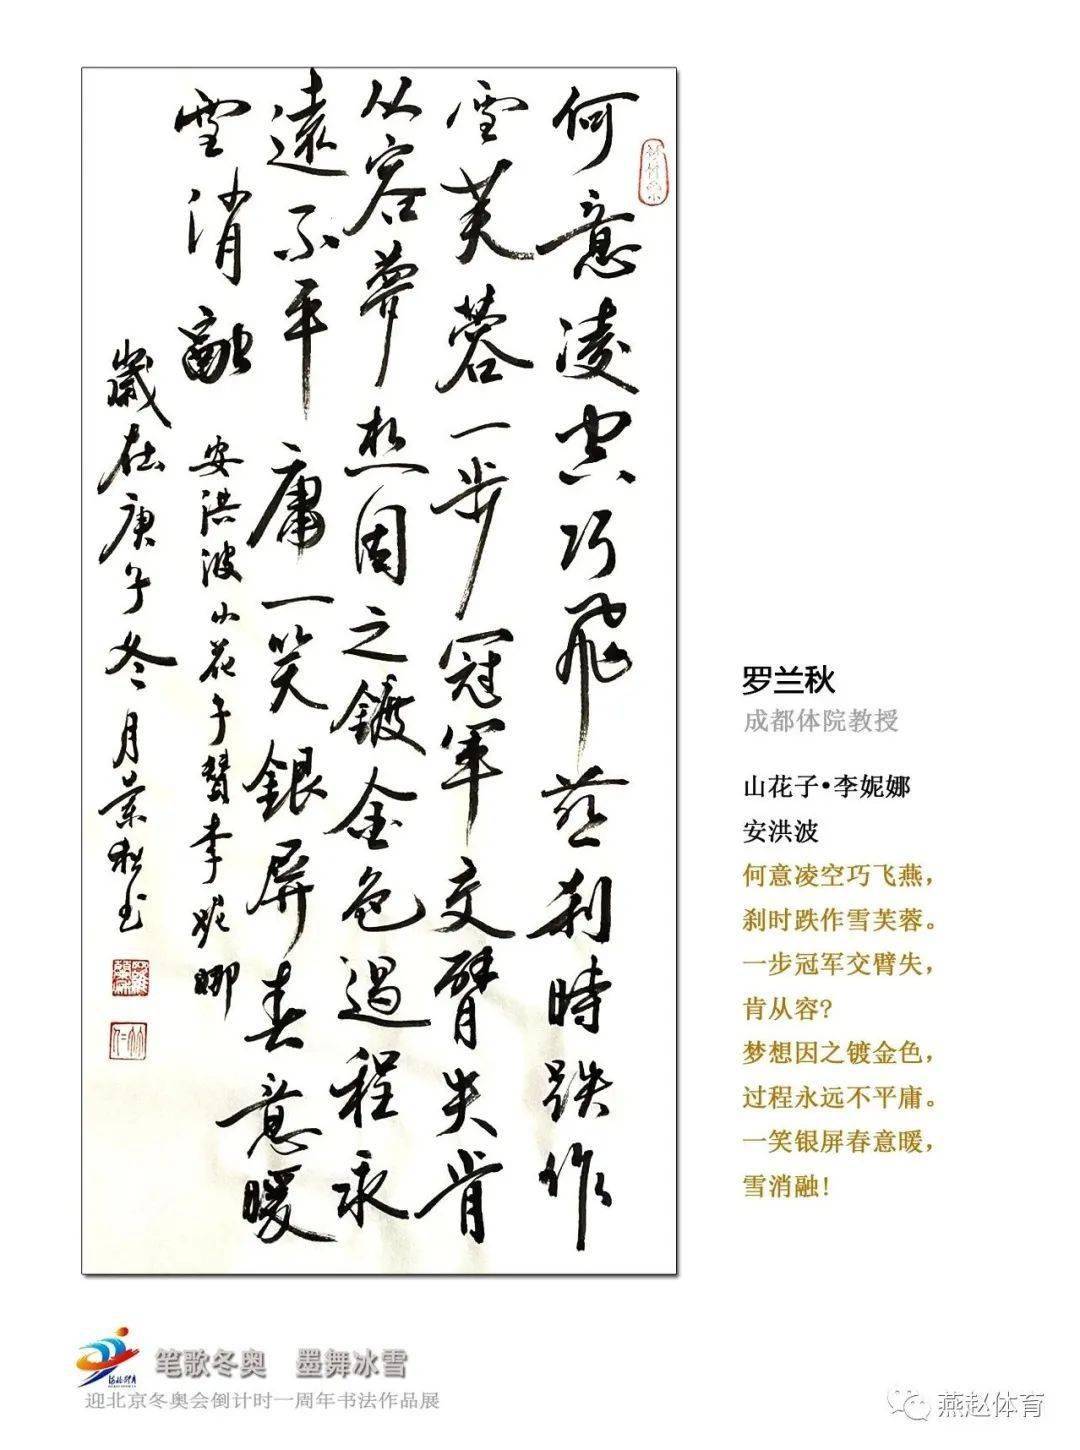 何意凌空巧飛燕刹時跌作
雪芙蓉一步冠軍交臂失肯
从容夢想因之鍍金色過程永
遠不平庸一笑銀屏春意暖
雪消融 安洪波山花子贊李妮娜
歲在庚子冬月蘭秋书
罗兰秋
成都体院教授
山花子•李妮娜
安洪波
何意凌空巧飞燕，
刹时跌作雪芙蓉。
一步冠军交臂失，
肯从容？
梦想因之镀金色，
过程永远不平庸。
一笑银屏春意暖，
雪消融！
笔歌冬奥 墨舞冰雪
迎北京冬奥会倒计时一周年书法作品展
燕赵体育